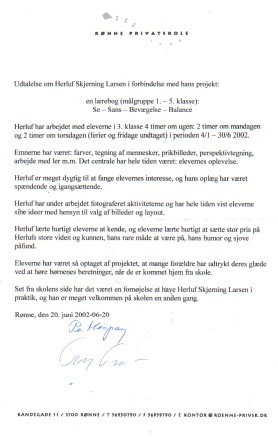 RØNNE PRIVATSKOLE
Udtalelse om Herluf Skjerning Larsen i forbindelse med hans projekt:
en lærebog (målgruppe 1. – 5. klasse):
Se – Sans – Bevægelse – Balance
Herluf har arbejdet med eleverne i 3. klasse 4 timer om ugen: 2 timer om mandagen
og 2 timer om torsdagen (ferier og fridage undtaget) i perioden 4/1 – 30/6 2002.
Emnerne har været: farver, tegning af mennesker, prikbilleder, perspektivtegning,
arbejde med ler m.m. Det centrale har hele tiden været: elevernes oplevelse.
Herluf er meget dygtig til at fange elevernes interesse, og hans oplæg har været
spændende og igangsættende.
Herluf har under arbejdet fotograferet aktiviteterne og har hele tiden vist eleverne
sine ideer med hensyn til valg af billeder og layout.
Herluf lærte hurtigt eleverne at kende, og eleverne lærte hurtigt at sætte stor pris på
Herlufs store viden og kunnen, hans rare måde at være på, hans humor og sjove
påfund.
Eleverne har været så optaget af projektet, at mange forældre har udtrykt deres glæde
ved at høre børnenes beretninger, når de er kommet hjem fra skole.
Set fra skolens side har det været en fornøjelse at have Herluf Skjerning Larsen i
praktik, og han er meget velkommen på skolen en anden gang.
Rønne, den 20. juni 2002-06-20
KANDEGADE 11 / 3700 RØNNE / T 56950790 / F 56959790 / E KONTOR@ROENNE-PRIVSK.DK